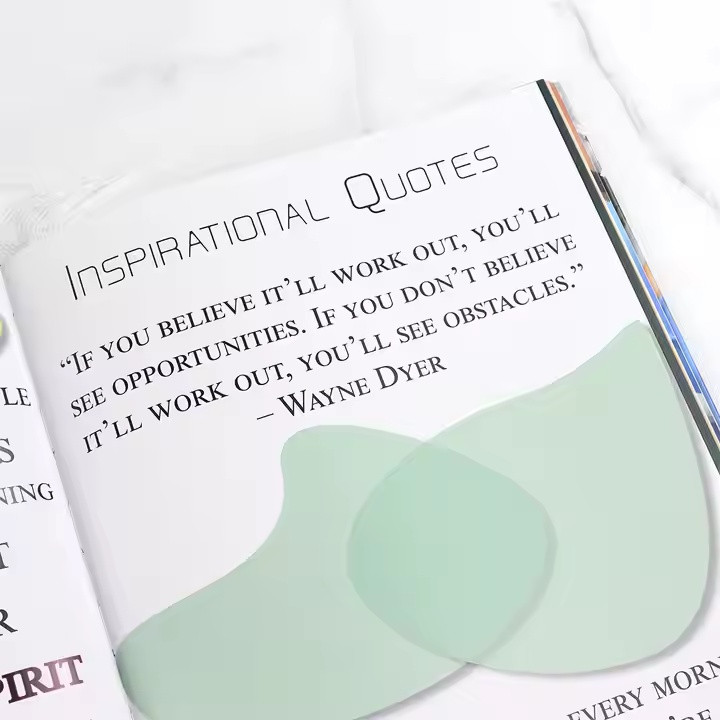 Inspirational Quotes
“If you believe it’ll work out, you’ll
see opportunities. If you don’t believe
it’ll work out, you’ll see obstacles.”
– Wayne Dyer
LE
S
NING
T
R
PIRIT
every morn